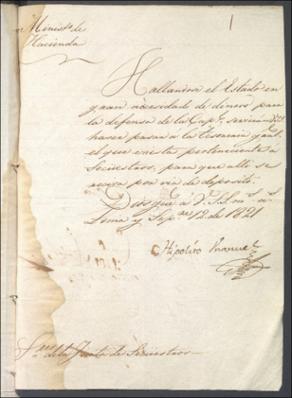 Minist.o de
Hacienda
Hallandose el Estado en
gran necesidad de dinero para
la defensa de la Cap.l, servirá
hacer pasar á la Tesorería gral.
el que exista perteneciente a
Secuestros, para que alli se
ponga por via de deposito.
Dios gue. á V.S.S. m.s a.s
Lima y Sep.re 12 de 1821
Hipólito Unanue
S.res de la Junta de Secuestros